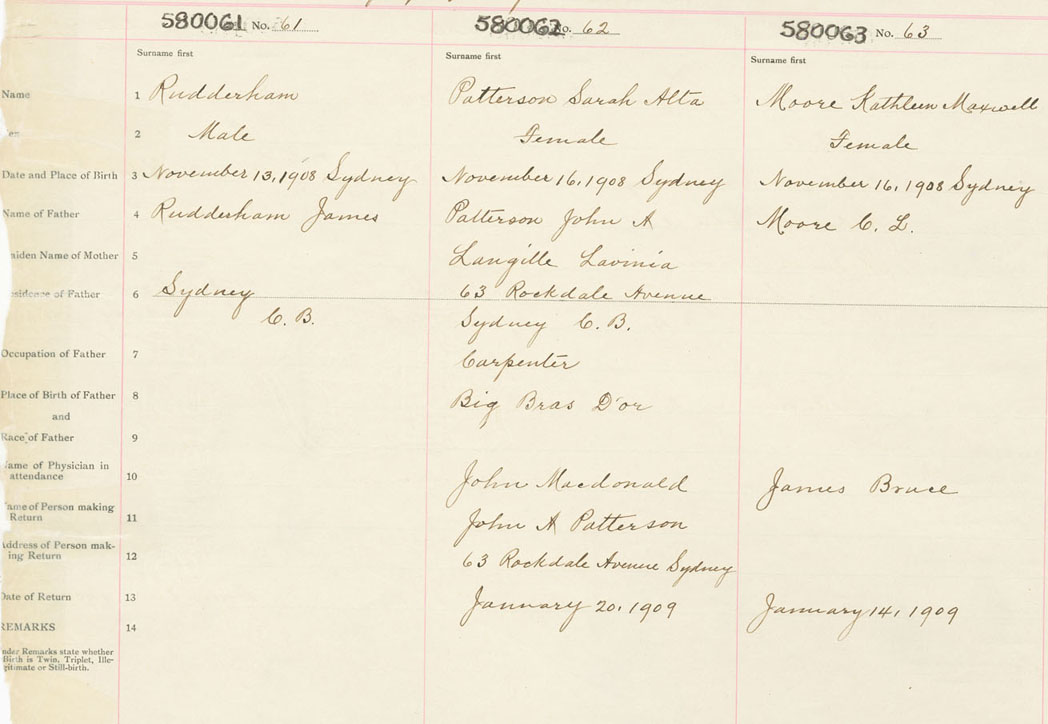 580061 No. 61 580062 No. 62 580063 No. 63
Surname first Surname first Surname first
Name 1 Rudderham Patterson Sarah Alta Moore Kathleen Maxwell
ex 2 Male Female Female
Date and Place of Birth 3 November 13, 1908 Sydney November 16, 1908 Sydney November 16, 1908 Sydney
Name of Father 4 Rudderham James Patterson John A Moore C. L.
aiden Name of Mother 5 Langille Lavinia
esidence of Father 6 Sydney 63 Rockdale Avenue
C. B. Sydney C. B.
Occupation of Father 7 Carpenter
Place of Birth of Father 8 Big Bras D'or
and
Race of Father 9
ame of Physician in
attendance 10 John Macdonald James Bruce
ame of Person making
Return 11 John A Patterson
Address of Person mak-
ing Return 12 63 Rockdale Avenue Sydney
Date of Return 13 January 20, 1909 January 14, 1909
REMARKS 14
nder Remarks state whether
Birth is Twin, Triplet, Ille-
gitimate or Still-birth.